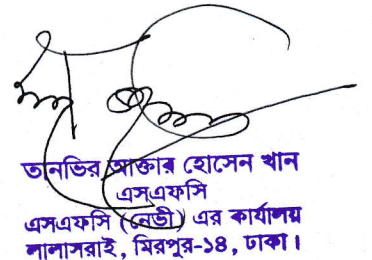 তানভির আক্তার হোসেন খান
এসএফসি
এসএফসি (নেভী) এর কার্যালয়
লালাসরাই, মিরপুর-১৪, ঢাকা।